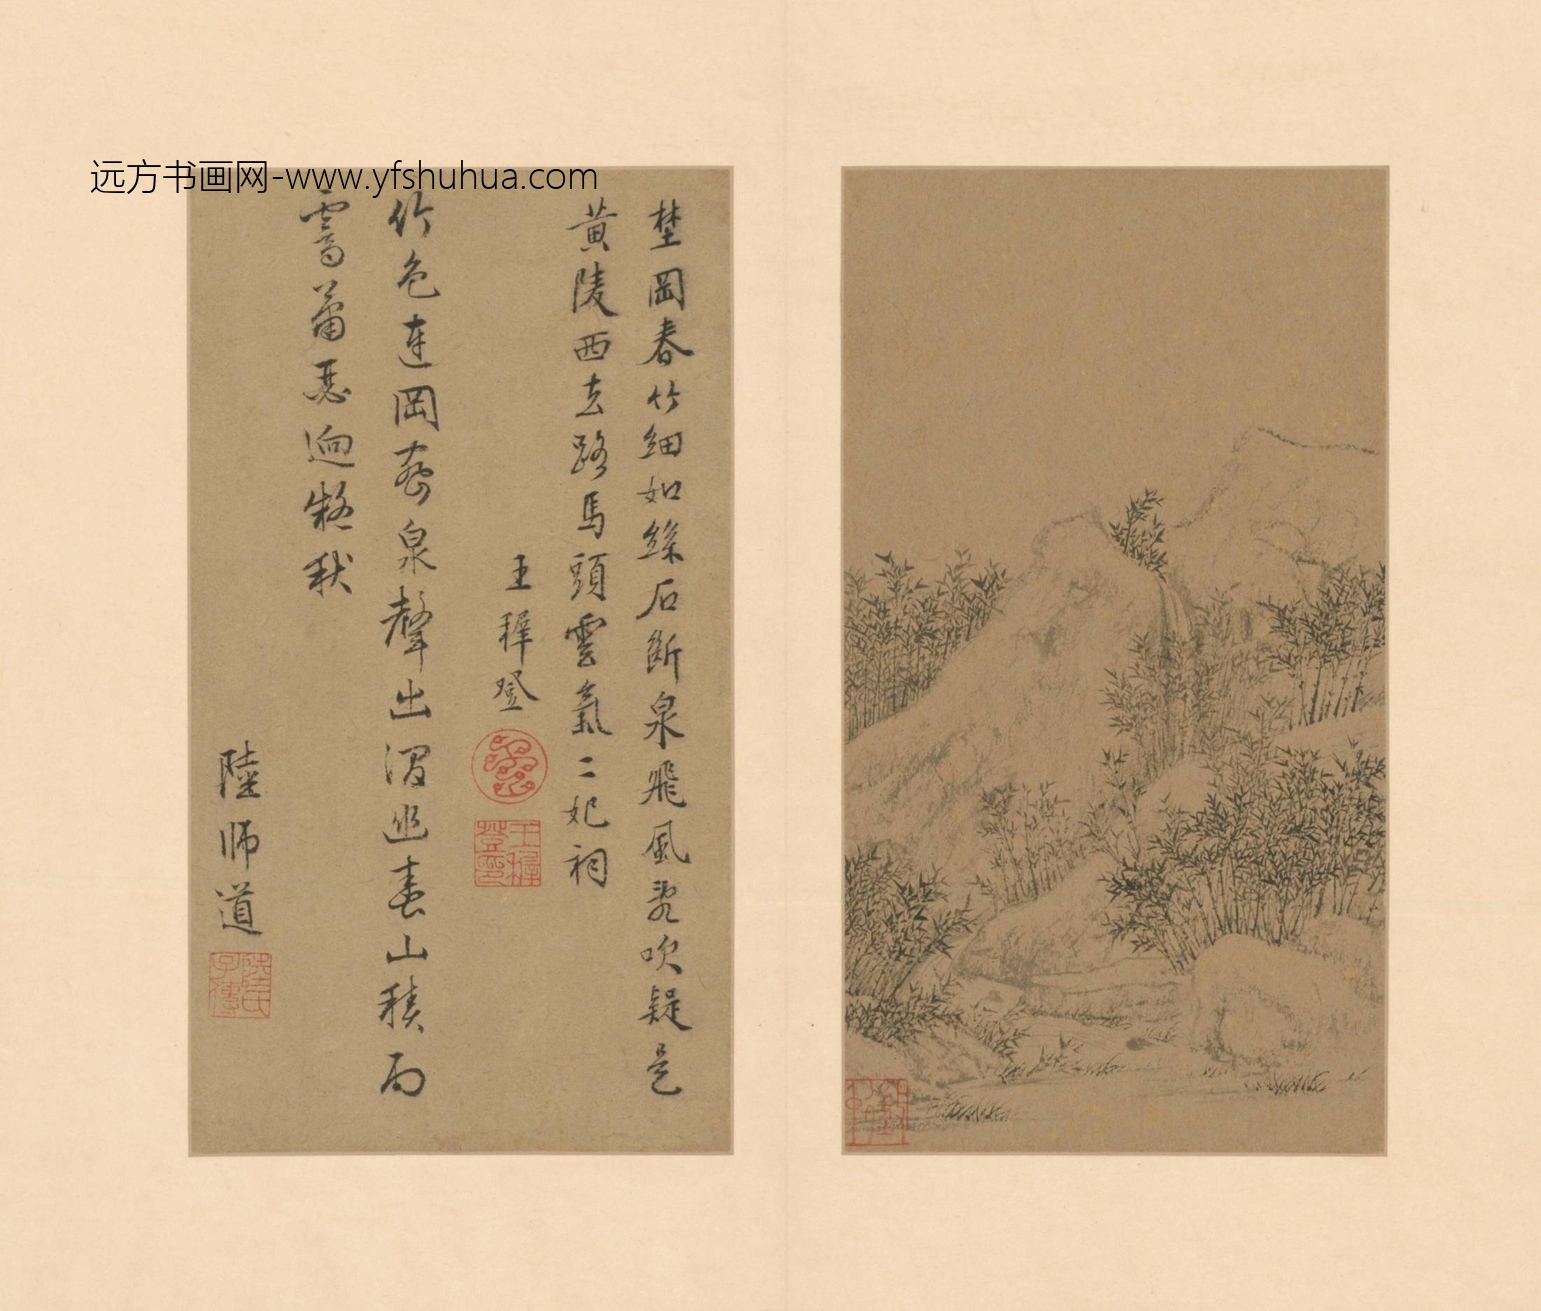 远方书画网-www.yfshuhua.com
埜岡春竹細如絲石斷泉飛風亂吹疑是
黄陵西去路馬頭雲氣二妃祠
王穉登
王穉登印
竹色連岡密泉聲出澗幽春山積雨
霽蕭瑟迥疑秋
陸師道
陸氏子傳